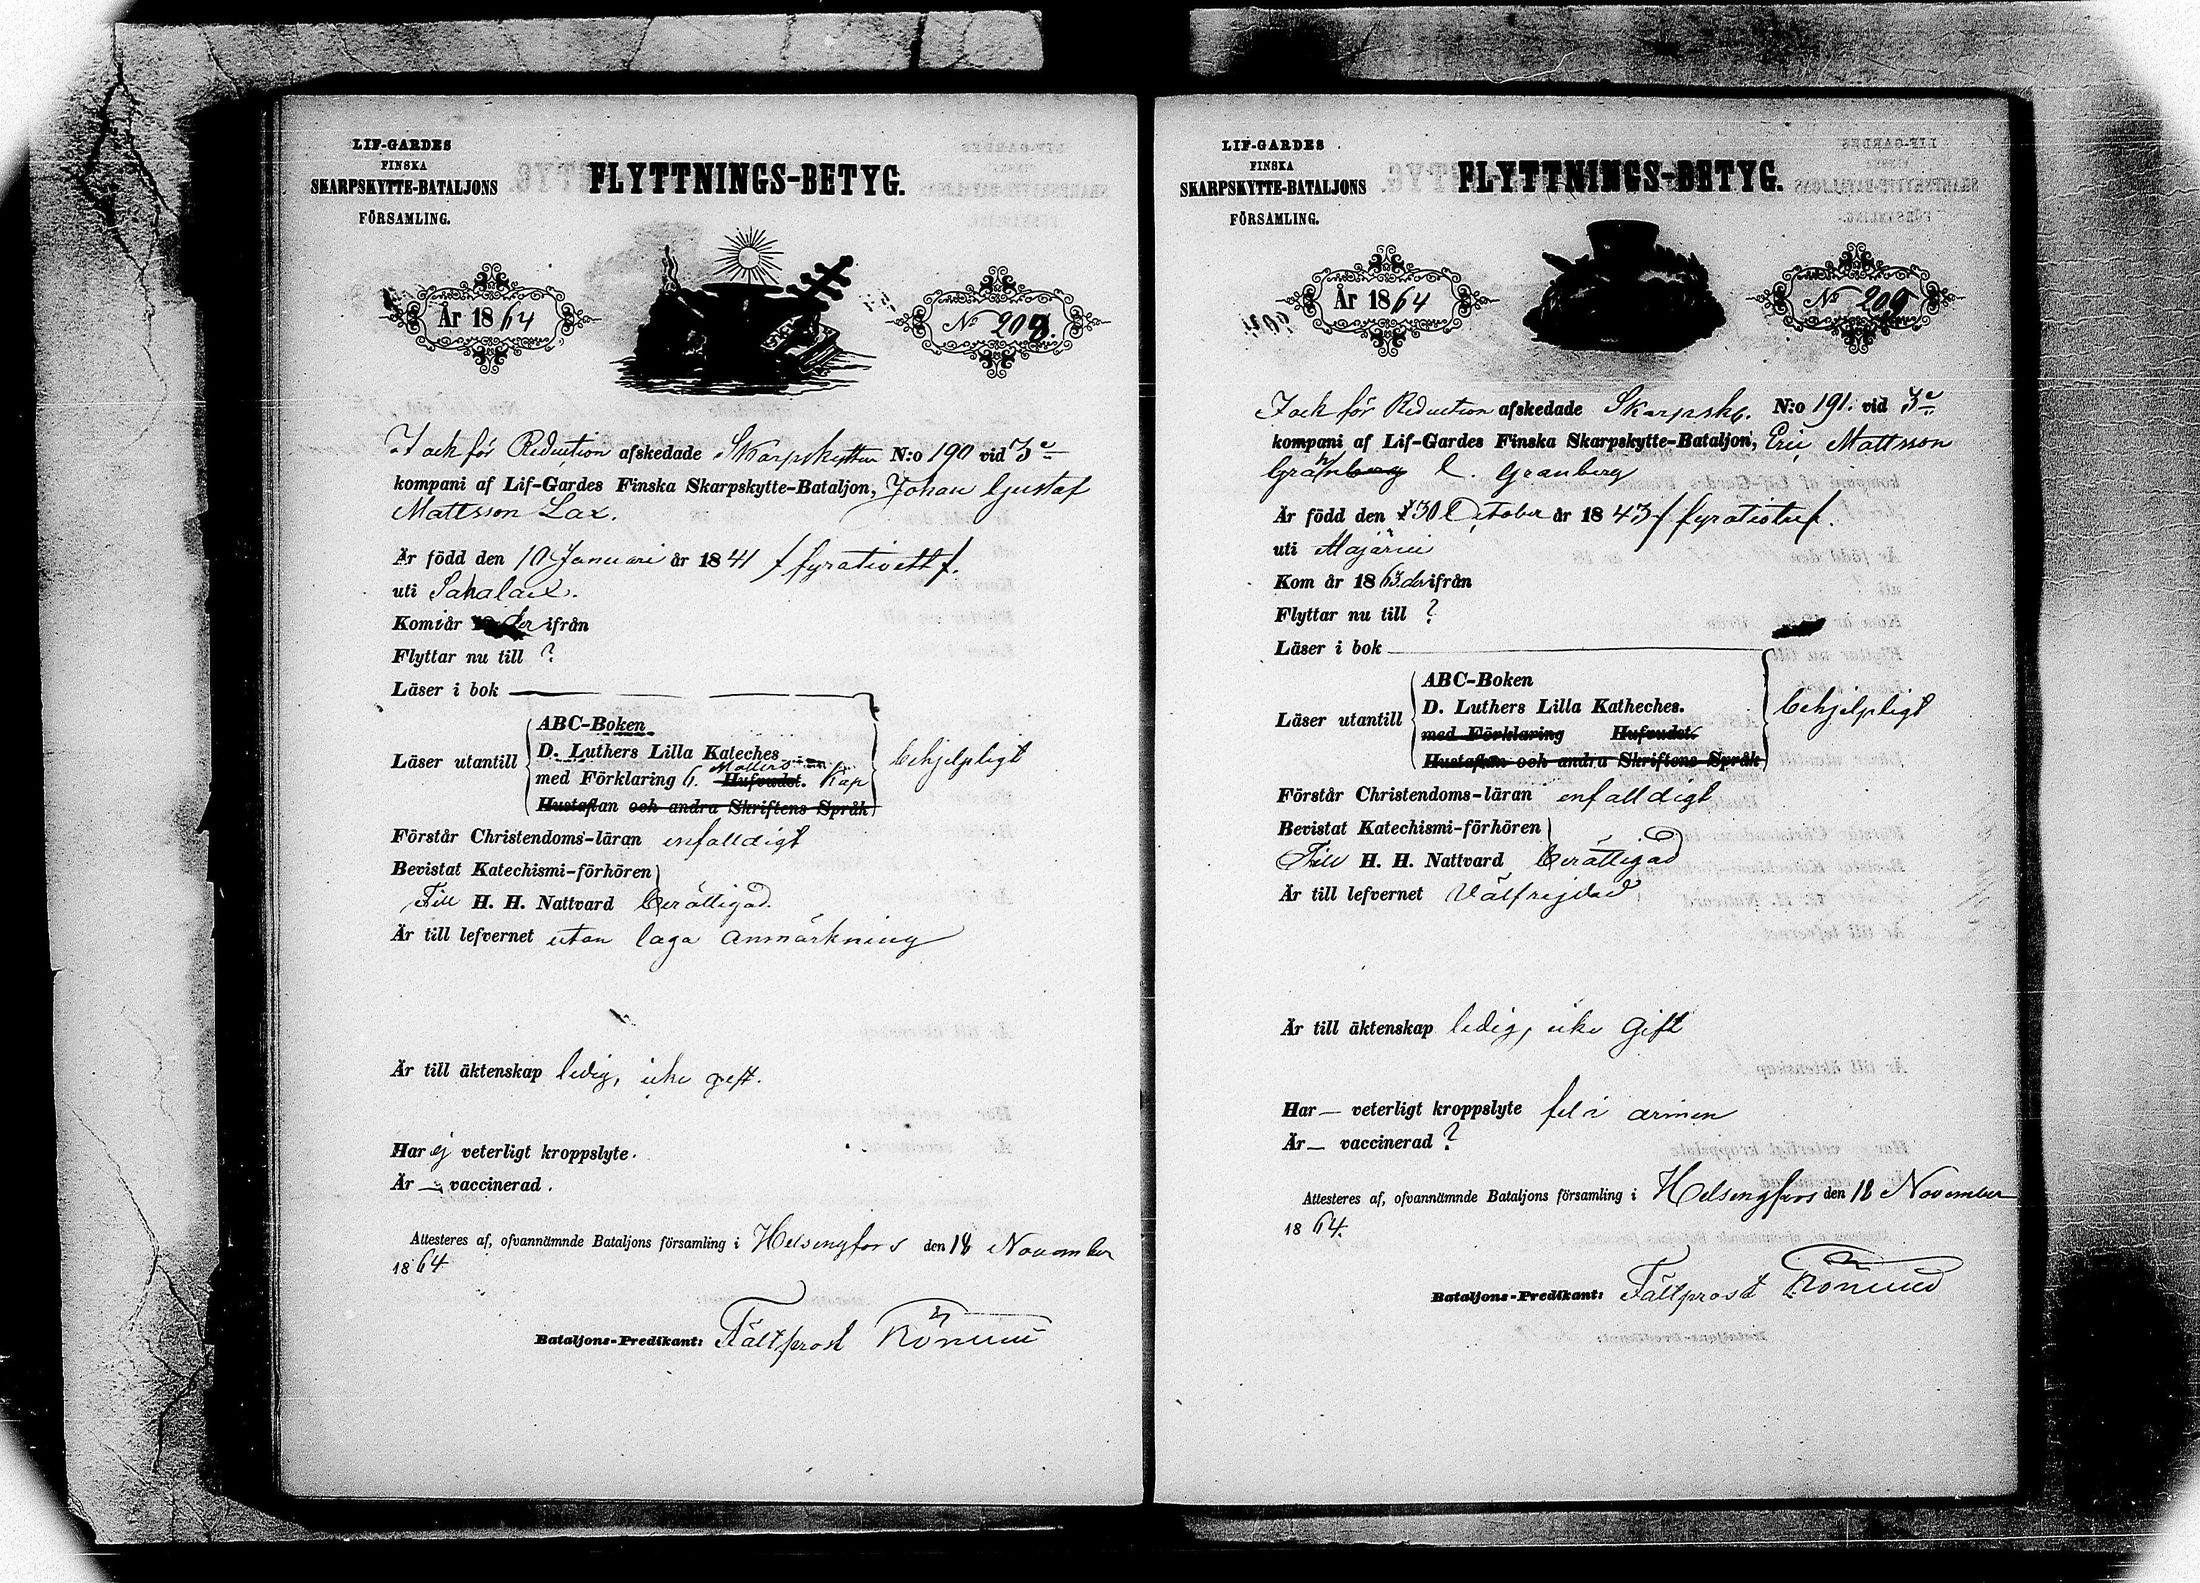 LIF-GARDES
FINSKA
SKARPSKYTTE-BATALJONS
FÖRSAMLING.
FLYTTNINGS-BETYG.
År 1864
No 208.
för Reduction afskedade Skarpskytten N:o 190 vid 3e
kompani af Lif-Gardes Finska Skarpskytte-Bataljon, Johan Gustaf
Mattsson Lax.
Är född den 10 Januari år 1841 / fyratioett /.
uti Sahalax.
Kom i år der ifrån
Flyttar nu till ?
Läser i bok
Läser utantill
ABC-Boken
D. Luthers Lilla Kateches
med Förklaring 6. Mallers Hufvudst. Kap
Hustaflan och andra Skriftens Språk
behjelpligt
Förstår Christendoms-läran enfalldigt
Bevistat Katechismi-förhören
Till H. H. Nattvard berättigad.
Är till lefvernet utan laga anmärkning
Är till äktenskap ledig, icke gift.
Har ej veterligt kroppslyte.
Är — vaccinerad.
Attesteres af, ofvannämnde Bataljons församling i Helsingfors den 18 November
1864
Bataljons-Predikant: Fältprost
LIF-GARDES
FINSKA
SKARPSKYTTE-BATALJONS
FÖRSAMLING.
FLYTTNINGS-BETYG.
År 1864
No 209
för Reduction afskedade Skarpsk. N:o 191. vid 3e
kompani af Lif-Gardes Finska Skarpskytte-Bataljon, Eric Mattsson
Granberg l. Granberg
Är född den 30 October år 1843 / fyratiotre /.
uti
Kom år 1863 derifrån
Flyttar nu till ?
Läser i bok
Läser utantill
ABC-Boken
D. Luthers Lilla Katheches.
med Förklaring Hufvudst.
Hustaflan och andra Skriftens Språk
behjelpligt
Förstår Christendoms-läran enfalldigt
Bevistat Katechismi-förhören
Till H. H. Nattvard berättigad
Är till lefvernet Välfrejdad
Är till äktenskap ledig, icke gift
Har — veterligt kroppslyte fel i armen
Är — vaccinerad ?
Attesteres af, ofvannämnde Bataljons församling i Helsingfors den 18 November
1864.
Bataljons-Predikant: Fältprost